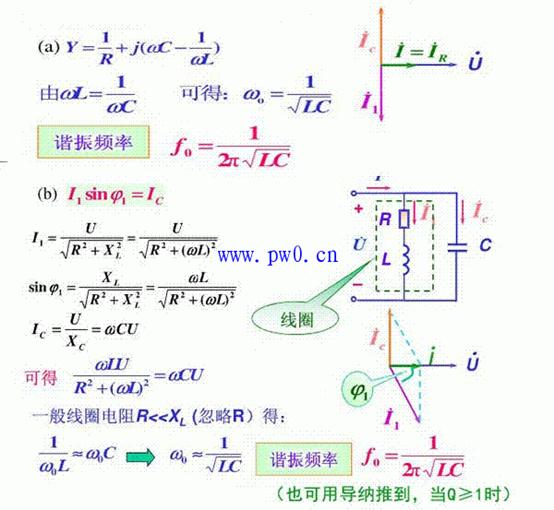 (a) Y = 1/R + j(ωC − 1/ωL)
İc İ = İR U̇
İ1
由ωL = 1/ωC 可得: ω₀ = 1/√LC
谐振频率 f₀ = 1/2π√LC
(b) I₁ sin φ₁ = I_C
I₁ = U/√(R² + X_L²) = U/√(R² + (ωL)²)
www.pw0.cn
sin φ₁ = X_L/√(R² + X_L²) = ωL/√(R² + (ωL)²)
I_C = U/X_C = ωCU
+ R İ1 İc
U̇ L C
−
线圈
可得 ωLU/R² + (ωL)² = ωCU
İc İ U̇
φ₁
İ1
一般线圈电阻R<<X_L (忽略R) 得:
1/ω₀L ≈ ω₀C ω₀ ≈ 1/√LC 谐振频率 f₀ = 1/2π√LC
(也可用导纳推到, 当Q≥1时)